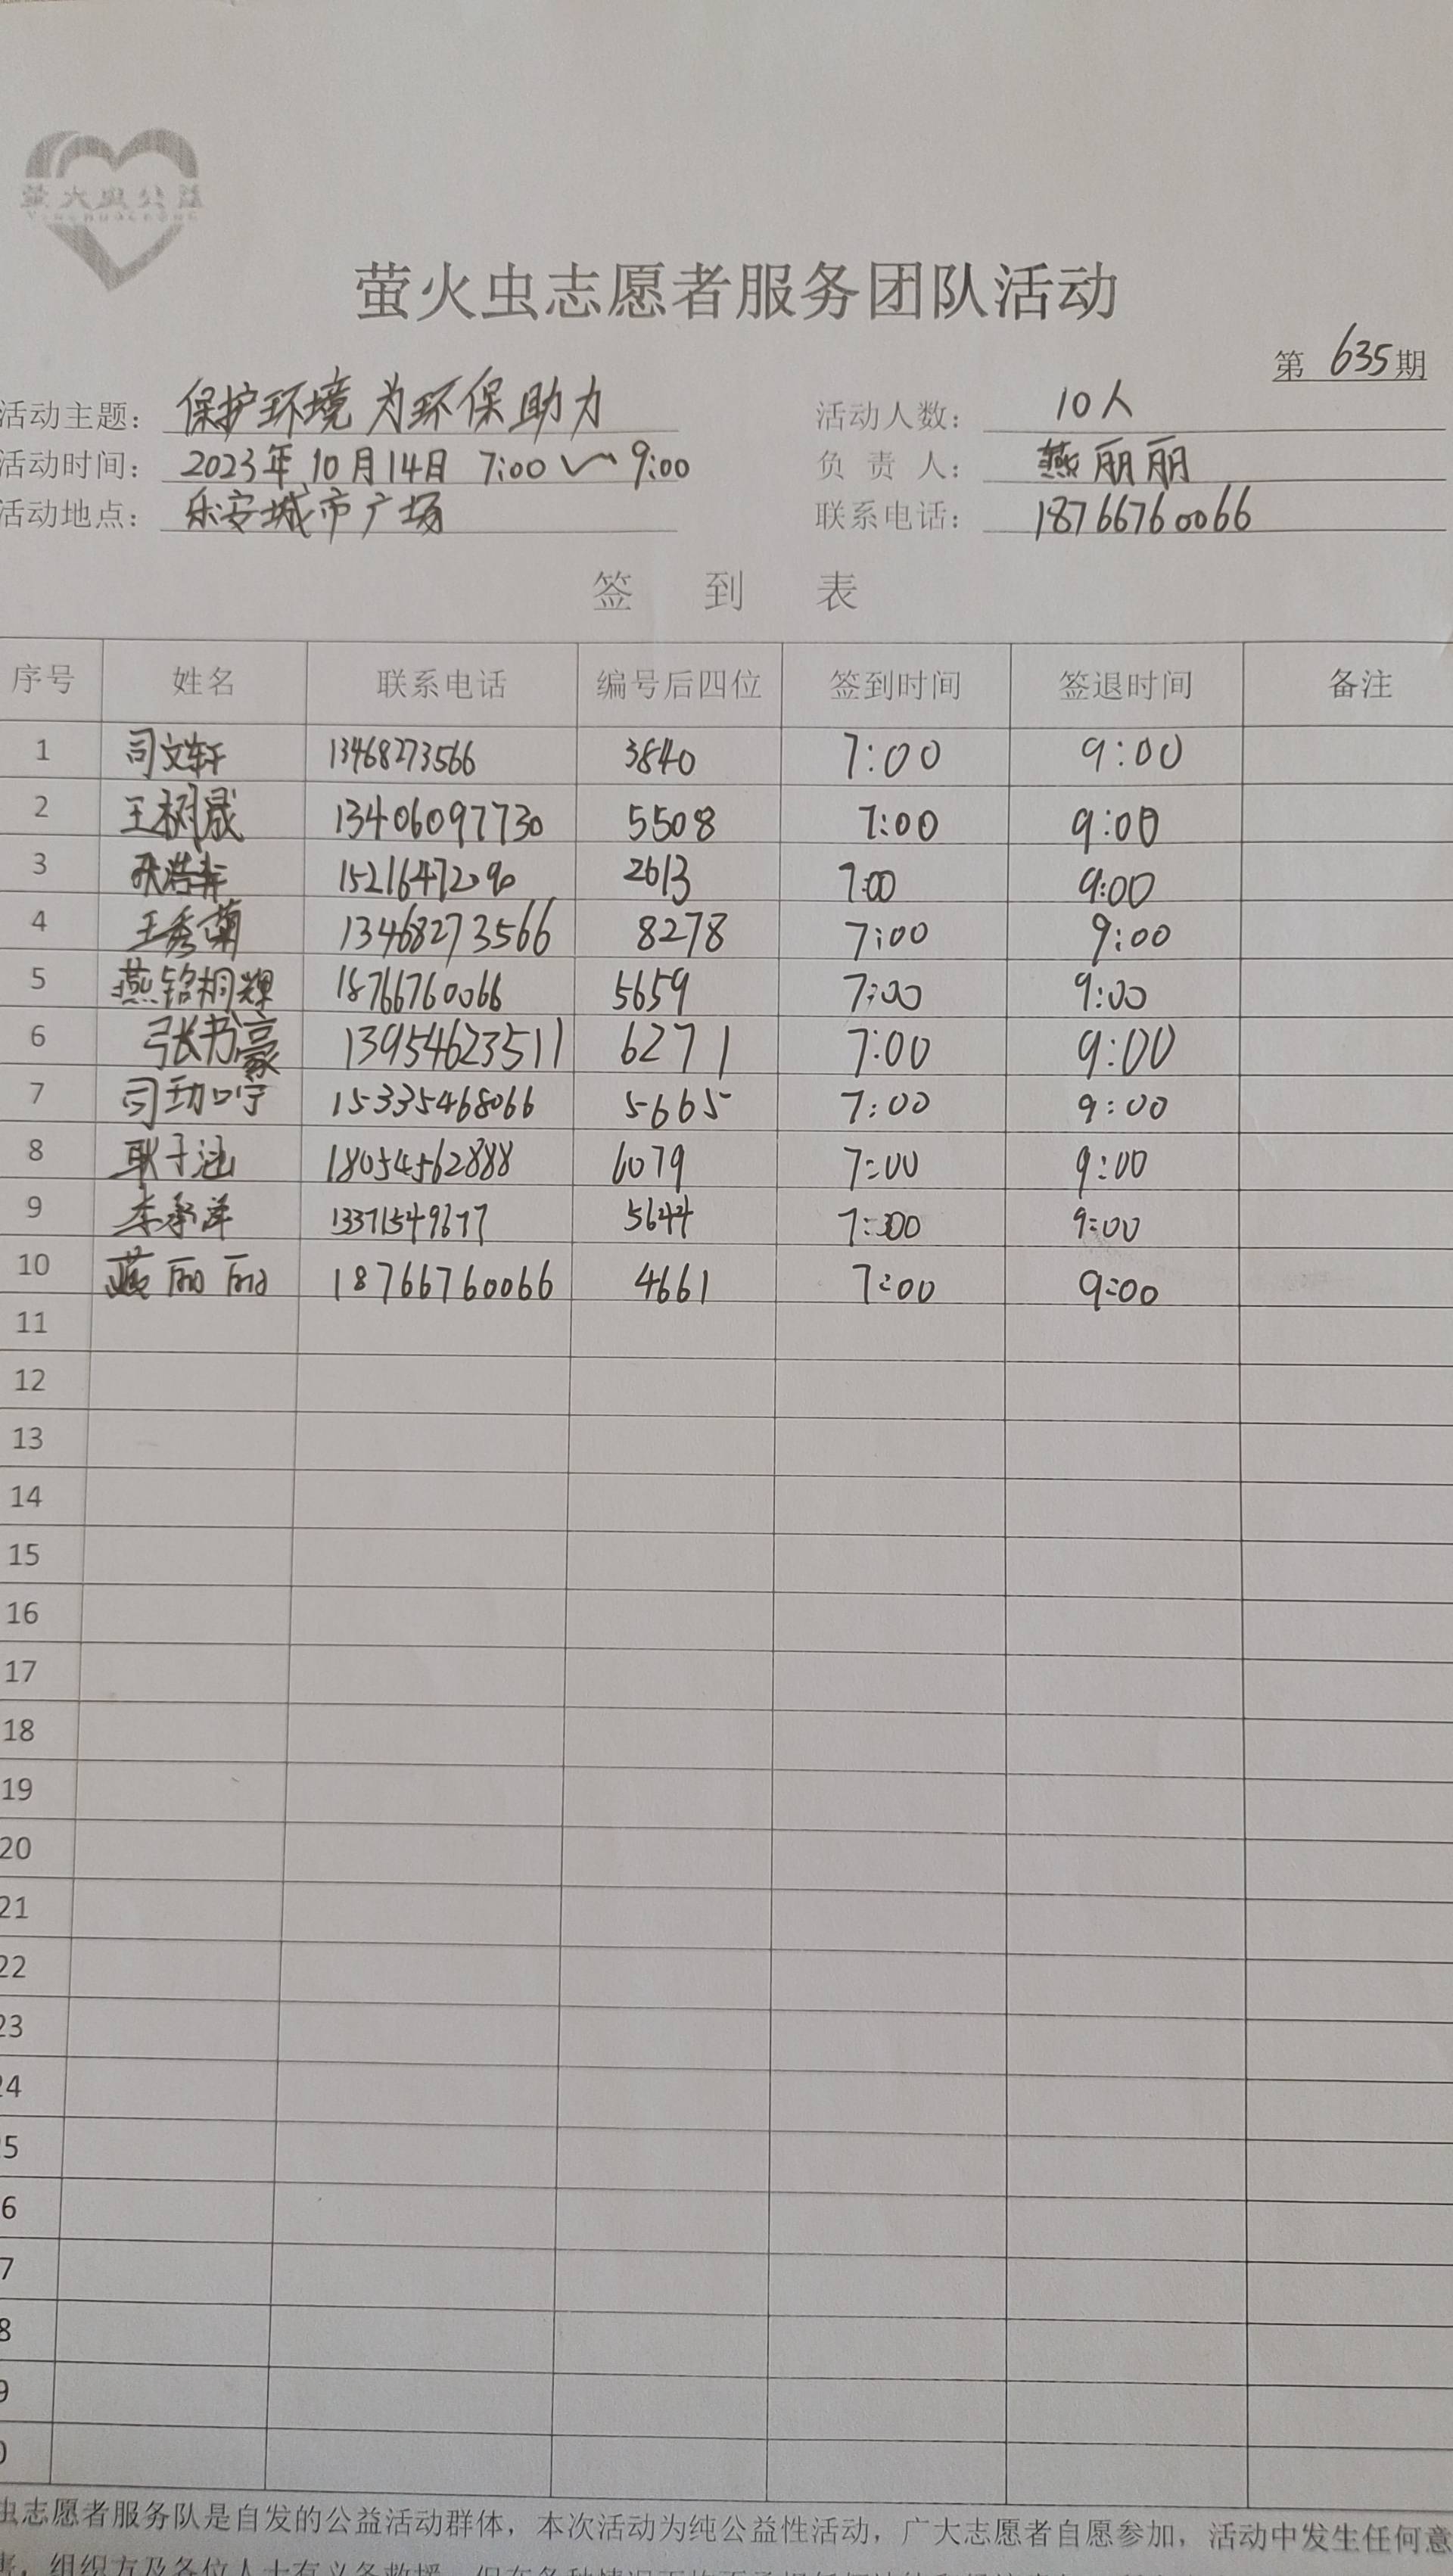 萤火虫公益
萤火虫志愿者服务团队活动
第 635 期
活动主题： 保护环境 为环保助力 活动人数： 10人
活动时间： 2023年10月14日 7:00～9:00 负 责 人： 燕丽丽
活动地点： 乐安城市广场 联系电话： 18766760066
签 到 表
序号 姓名 联系电话 编号后四位 签到时间 签退时间 备注
1 司文轩 13468273566 3840 7:00 9:00
2 王树晟 13406097730 5508 7:00 9:00
3 15216472090 2613 7:00 9:00
4 王秀兰 13468273566 8278 7:00 9:00
5 燕铭桐辉 18766760066 5659 7:00 9:00
6 张书豪 13954623511 6271 7:00 9:00
7 司 15335468066 5665 7:00 9:00
8 耿子涵 18054562888 6079 7:00 9:00
9 李承洋 13371549677 5644 7:00 9:00
10 燕丽丽 18766760066 4661 7:00 9:00
11
12
13
14
15
16
17
18
19
20
21
22
23
24
5
6
7
8
9
0
虫志愿者服务队是自发的公益活动群体，本次活动为纯公益性活动，广大志愿者自愿参加，活动中发生任何意
责，组织方及各位人士有义务救援，但在各种情况下